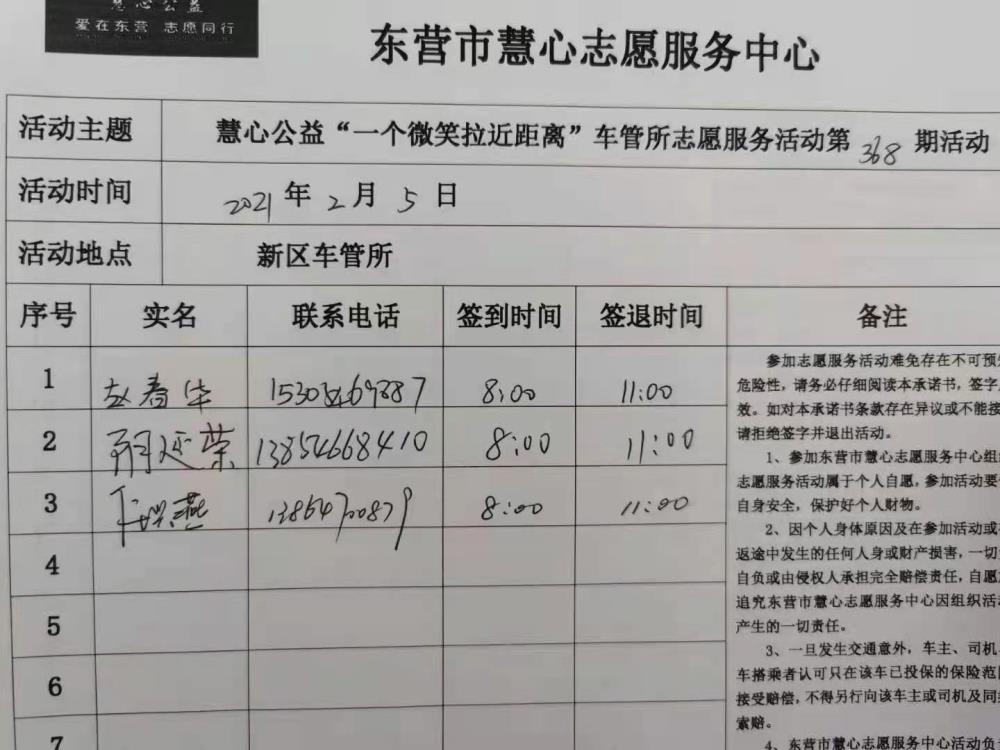 慧心公益
爱在东营 志愿同行
东营市慧心志愿服务中心
活动主题 慧心公益“一个微笑拉近距离”车管所志愿服务活动第 368 期活动
活动时间 2021 年 2 月 5 日
活动地点 新区车管所
序号 实名 联系电话 签到时间 签退时间 备注
1 赵春华 8:00 11:00
2 延荣 13854668410 8:00 11:00
3 燕 8:00 11:00
4
5
6
7
参加志愿服务活动难免存在不可预
危险性，请务必仔细阅读本承诺书，签字
效。如对本承诺书条款存在异议或不能接
请拒绝签字并退出活动。
1、参加东营市慧心志愿服务中心组
志愿服务活动属于个人自愿，参加活动要
自身安全，保护好个人财物。
2、因个人身体原因及在参加活动或
返途中发生的任何人身或财产损害，一切
自负或由侵权人承担完全赔偿责任，自愿
追究东营市慧心志愿服务中心因组织活
产生的一切责任。
3、一旦发生交通意外，车主、司机
车搭乘者认可只在该车已投保的保险范
接受赔偿，不得另行向该车主或司机及同
索赔。
4、东营市慧心志愿服务中心活动负